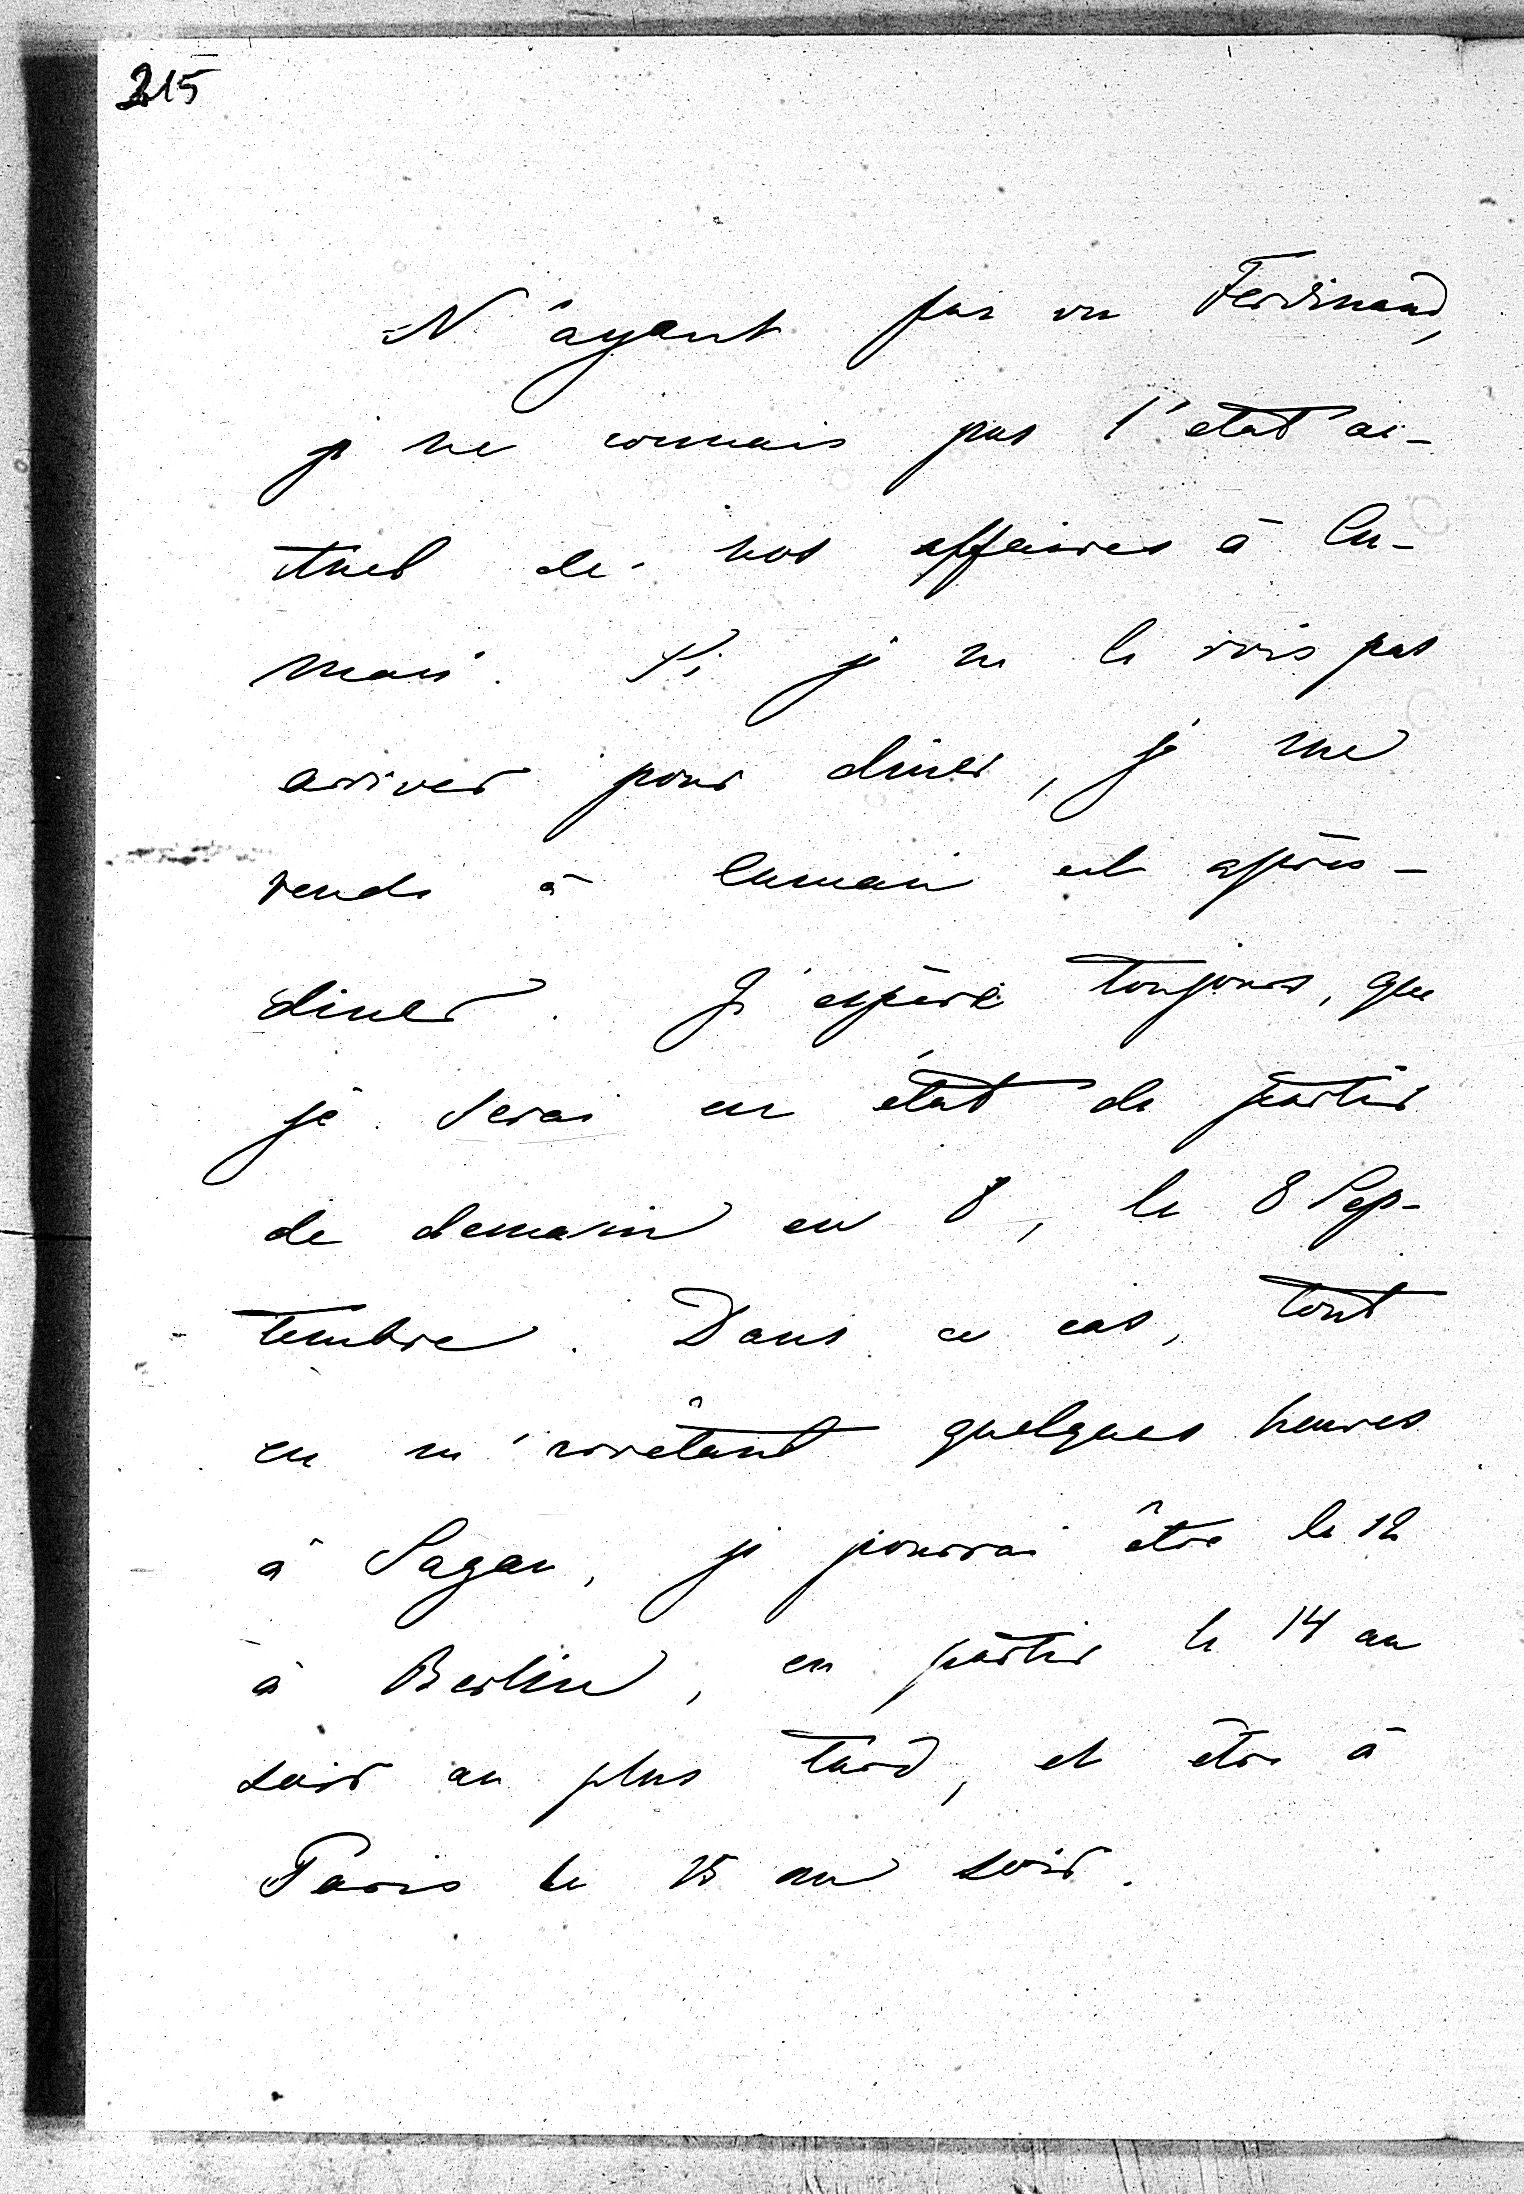 215
N'ayant pas vu Ferdinand,
je ne connais pas l'état ac-
tuel de nos affaires à Cu-
mai. Si je ne le vois pas
arriver pour diner, je me
rends à Cumai cet après-
diner. J'espère toujours, que
je serai en état de partir
de demain en 8, le 8 Sep-
tembre. Dans ce cas, tout
en m'arrêtant quelques heures
à Sagan, je pourrai être le 12
à Berlin, en partir le 14 au
soir au plus tard, et être à
Paris le 15 au soir.